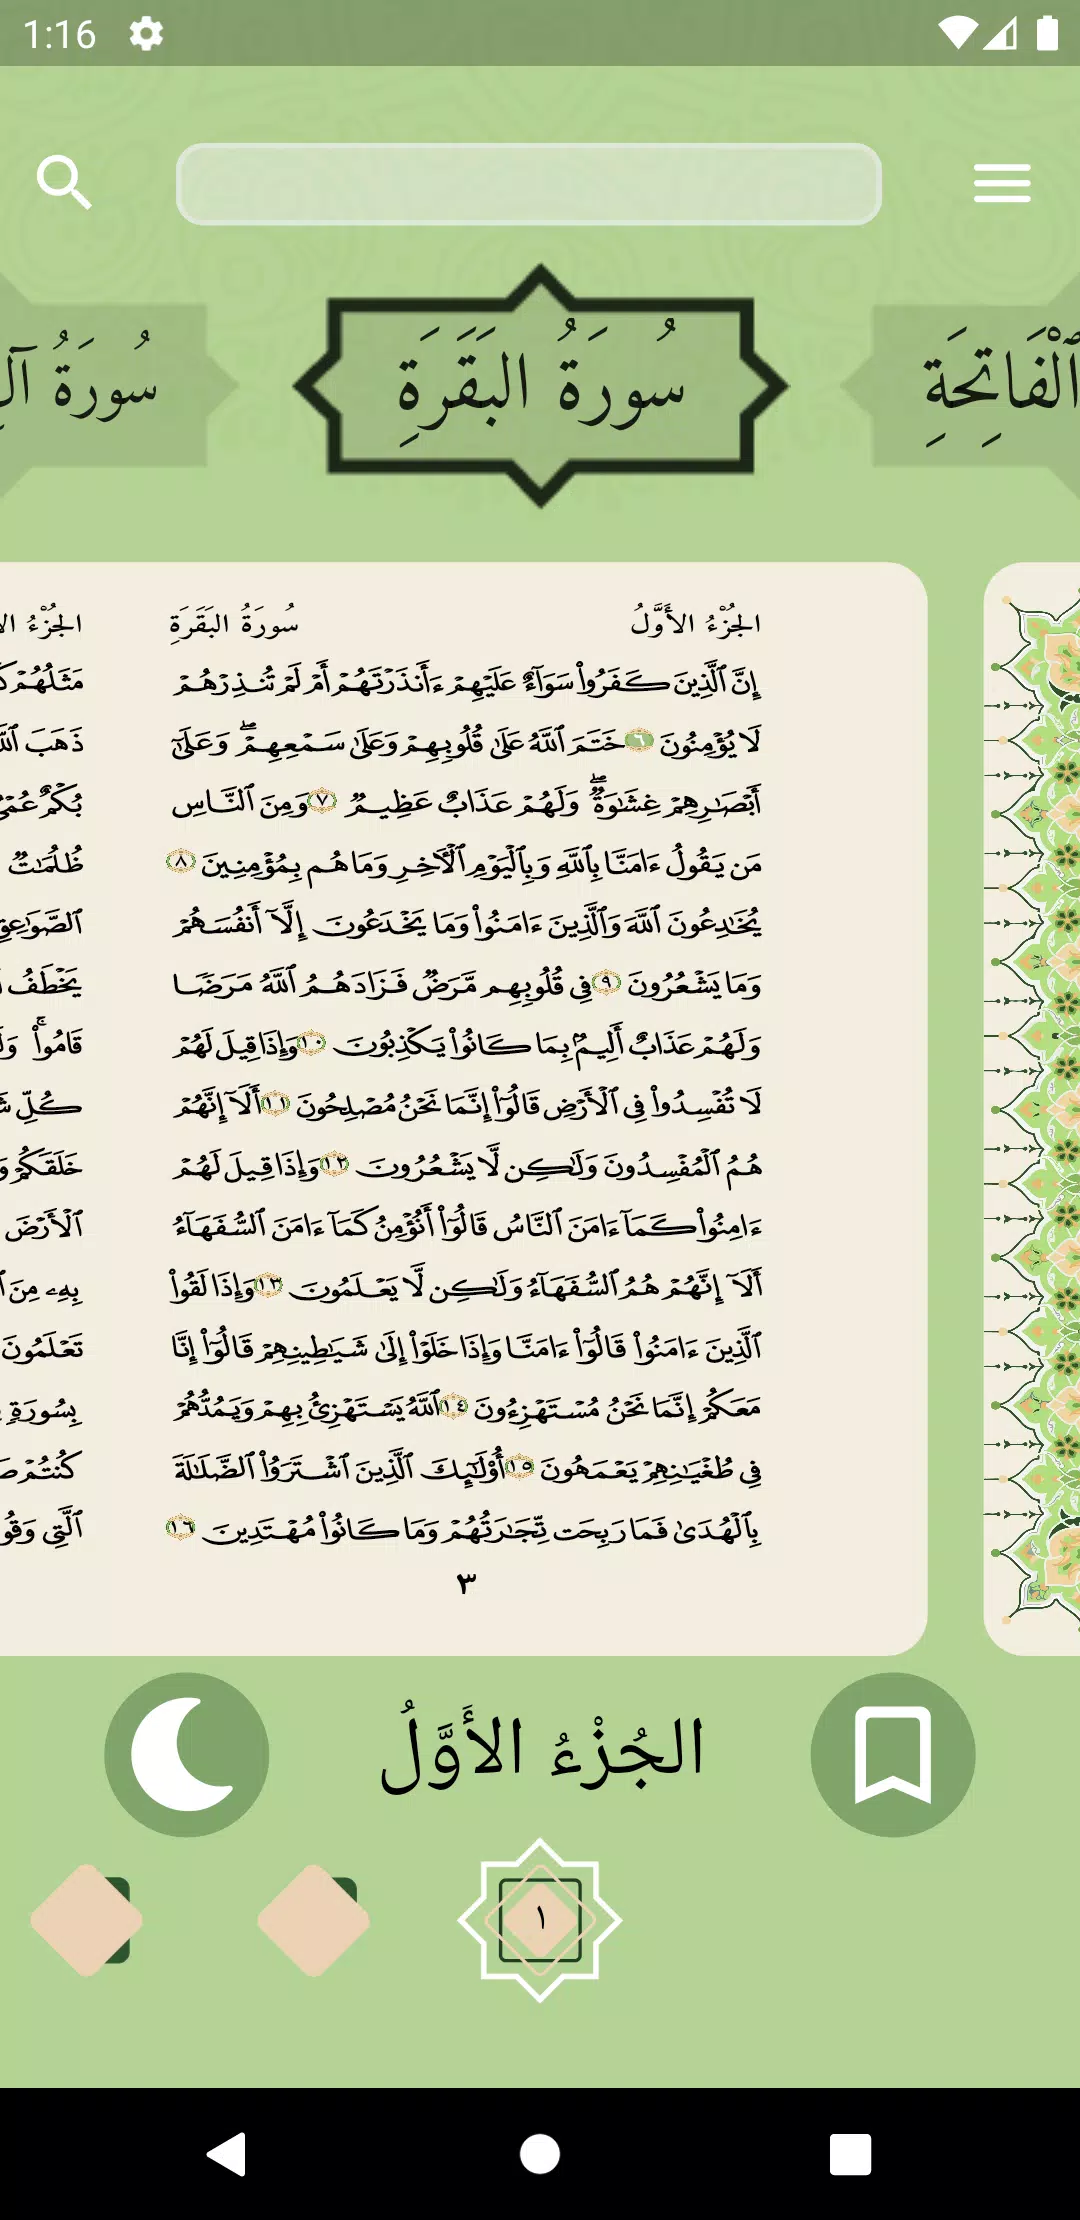 1:16
سُورَةُ آل
سُورَةُ البَقَرَةِ
ٱلْفَاتِحَةِ
الجُزْءُ الأَوَّلُ
سُورَةُ البَقَرَةِ
إِنَّ ٱلَّذِينَ كَفَرُوا۟ سَوَآءٌ عَلَيْهِمْ ءَأَنذَرْتَهُمْ أَمْ لَمْ تُنذِرْهُمْ
لَا يُؤْمِنُونَ ٦ خَتَمَ ٱللَّهُ عَلَىٰ قُلُوبِهِمْ وَعَلَىٰ سَمْعِهِمْ ۖ وَعَلَىٰٓ
أَبْصَـٰرِهِمْ غِشَـٰوَةٌ ۖ وَلَهُمْ عَذَابٌ عَظِيمٌ ٧ وَمِنَ ٱلنَّاسِ
مَن يَقُولُ ءَامَنَّا بِٱللَّهِ وَبِٱلْيَوْمِ ٱلْـَٔاخِرِ وَمَا هُم بِمُؤْمِنِينَ ٨
يُخَـٰدِعُونَ ٱللَّهَ وَٱلَّذِينَ ءَامَنُوا۟ وَمَا يَخْدَعُونَ إِلَّآ أَنفُسَهُمْ
وَمَا يَشْعُرُونَ ٩ فِى قُلُوبِهِم مَّرَضٌ فَزَادَهُمُ ٱللَّهُ مَرَضًا
وَلَهُمْ عَذَابٌ أَلِيمٌۢ بِمَا كَانُوا۟ يَكْذِبُونَ ١٠ وَإِذَا قِيلَ لَهُمْ
لَا تُفْسِدُوا۟ فِى ٱلْأَرْضِ قَالُوٓا۟ إِنَّمَا نَحْنُ مُصْلِحُونَ ١١ أَلَآ إِنَّهُمْ
هُمُ ٱلْمُفْسِدُونَ وَلَـٰكِن لَّا يَشْعُرُونَ ١٢ وَإِذَا قِيلَ لَهُمْ
ءَامِنُوا۟ كَمَآ ءَامَنَ ٱلنَّاسُ قَالُوٓا۟ أَنُؤْمِنُ كَمَآ ءَامَنَ ٱلسُّفَهَآءُ
أَلَآ إِنَّهُمْ هُمُ ٱلسُّفَهَآءُ وَلَـٰكِن لَّا يَعْلَمُونَ ١٣ وَإِذَا لَقُوا۟
ٱلَّذِينَ ءَامَنُوا۟ قَالُوٓا۟ ءَامَنَّا وَإِذَا خَلَوْا۟ إِلَىٰ شَيَـٰطِينِهِمْ قَالُوٓا۟ إِنَّا
مَعَكُمْ إِنَّمَا نَحْنُ مُسْتَهْزِءُونَ ١٤ ٱللَّهُ يَسْتَهْزِئُ بِهِمْ وَيَمُدُّهُمْ
فِى طُغْيَـٰنِهِمْ يَعْمَهُونَ ١٥ أُو۟لَـٰٓئِكَ ٱلَّذِينَ ٱشْتَرَوُا۟ ٱلضَّلَـٰلَةَ
بِٱلْهُدَىٰ فَمَا رَبِحَت تِّجَـٰرَتُهُمْ وَمَا كَانُوا۟ مُهْتَدِينَ ١٦
٣
الجُزْءُ
مَثَلُهُمْ
ذَهَبَ
بُكْمٌ عُمْىٌ
ظُلُمَـٰتٌ
ٱلصَّوَٰعِقِ
يَخْطَفُ
قَامُوا۟ ۚ
كُلِّ
خَلَقَكُمْ
ٱلْأَرْضَ
بِهِۦ مِنَ
تَعْلَمُونَ
بِسُورَةٍ
كُنتُمْ
ٱلَّتِى
الجُزْءُ الأَوَّلُ
١